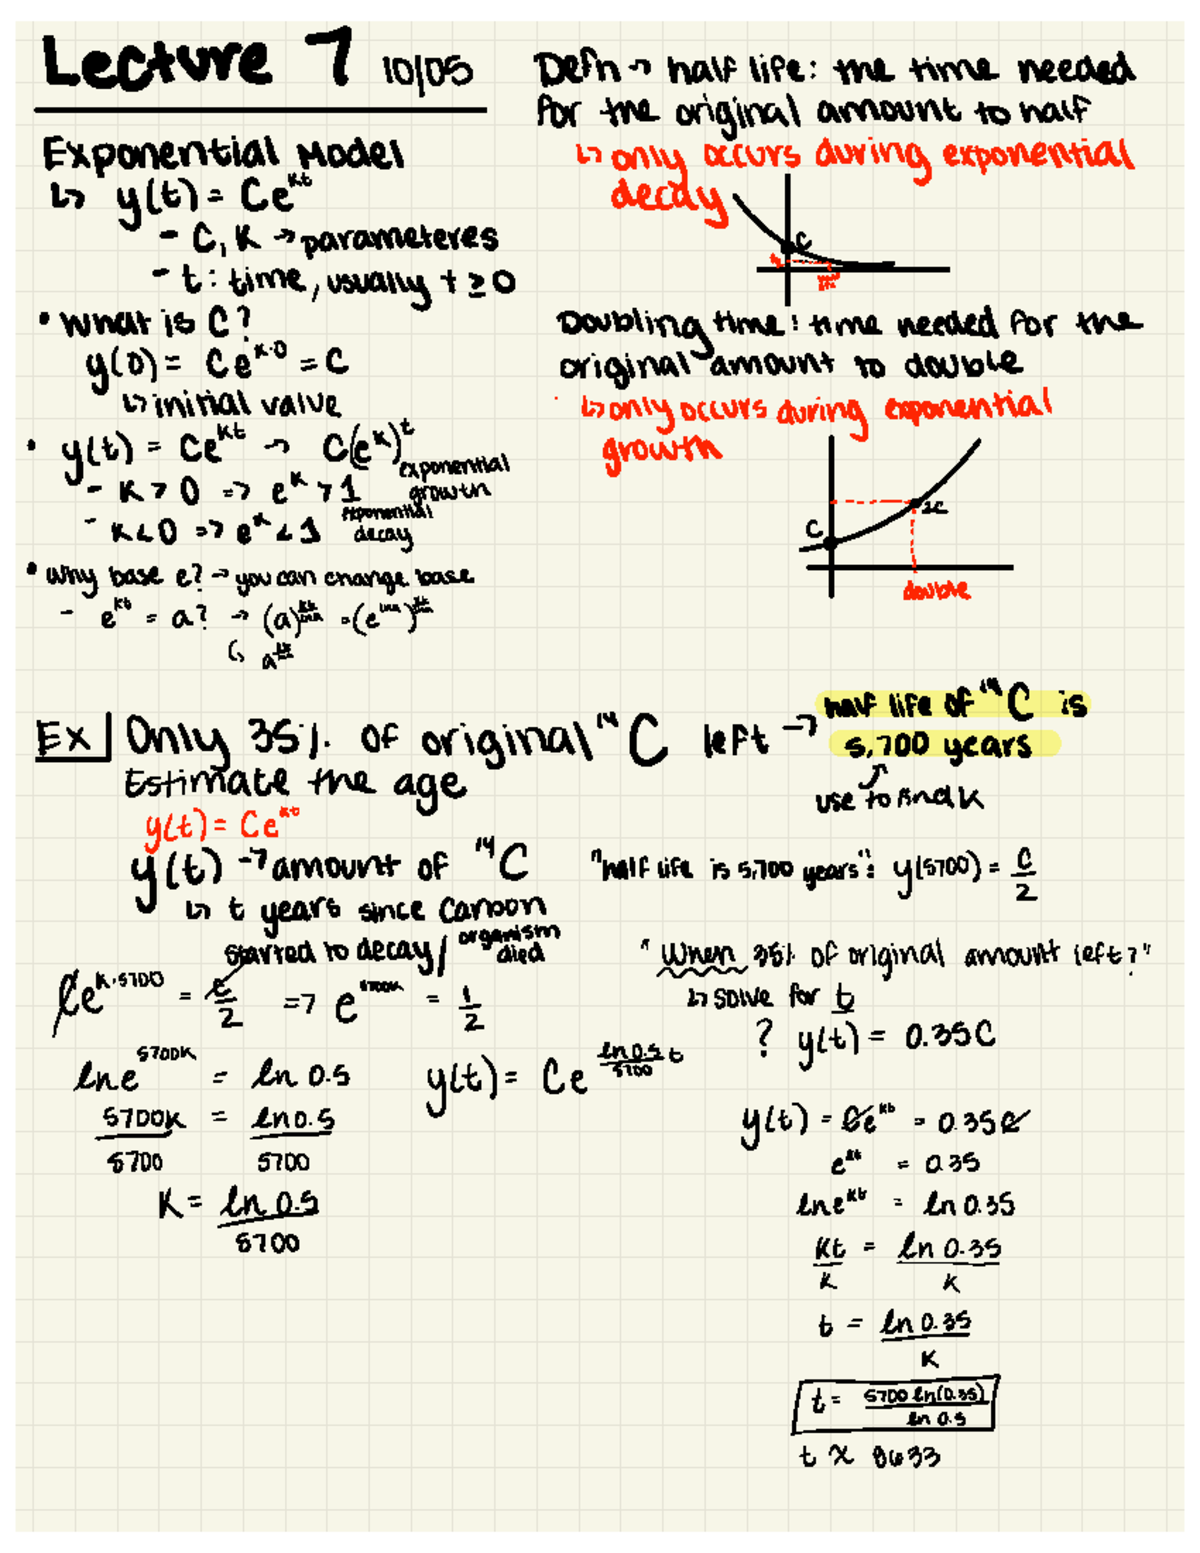 Lecture 7 10/05
Exponential Model
↳ y(t) = Ce^kt
- C, K → parameteres
- t : time, usually t ≥ 0
• What is C?
y(0) = Ce^k·0 = C
↳ initial value
• y(t) = Ce^kt → C(e^k)^t
- K > 0 => e^k > 1 exponential growth
- K < 0 => e^k < 1 exponential decay
• Why base e? → you can change base
- e^kt = a? → (a)^kt/lna = (e^lna)^kt/lna
Defn → half life: the time needed
for the original amount to half
↳ only occurs during exponential
decay
C
Doubling time: time needed for the
original amount to double
↳ only occurs during exponential
growth
2C
C
double
Ex Only 35% of original ¹⁴C left → half life of ¹⁴C is
5,700 years
Estimate the age
use to find k
y(t) = Ce^kt
y(t) → amount of ¹⁴C
↳ t years since Carbon
started to decay/ organism died
Ce^k·5700 = C/2 => e^5700k = 1/2
ln e^5700k = ln 0.5
5700k/5700 = ln 0.5/5700
K = ln 0.5/5700
y(t) = Ce^(ln 0.5/5700)t
"half life is 5,700 years": y(5700) = C/2
"When 35% of original amount left?"
↳ solve for t
? y(t) = 0.35C
y(t) = Ce^kt = 0.35C
e^kt = 0.35
ln e^kt = ln 0.35
kt/k = ln 0.35/k
t = ln 0.35/k
t = 5700 ln(0.35)/ln 0.5
t ≈ 8633